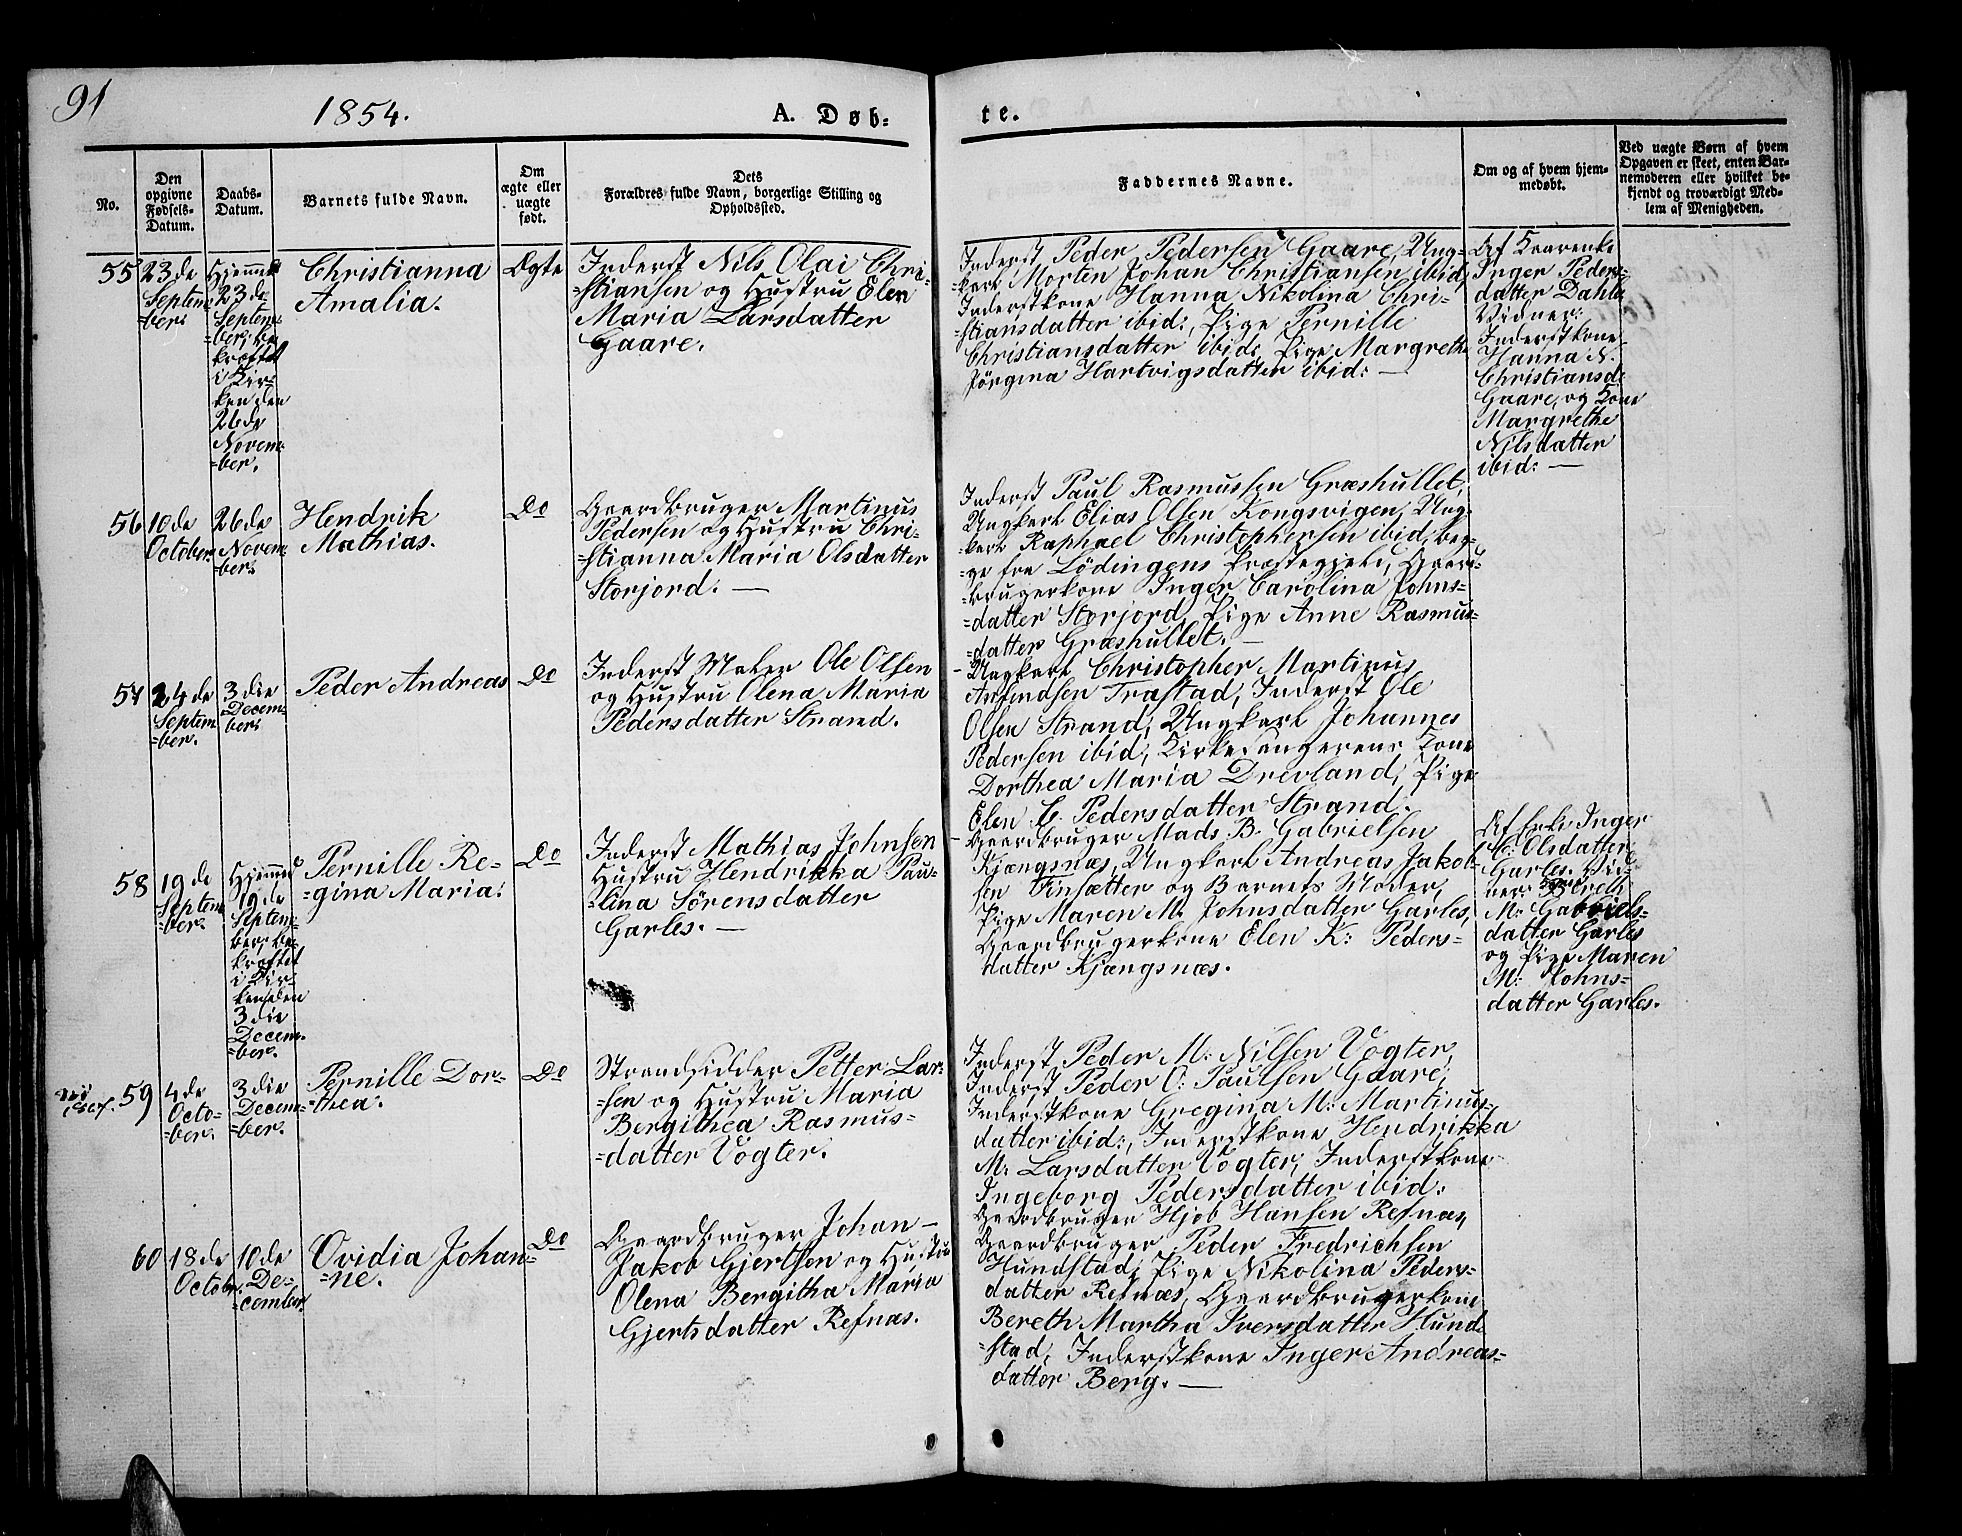 91
1854.
A. Døb-
te.
No.
Den
opgivne
Fødsels-
Datum.
Daabs-
Datum.
Barnets fulde Navn.
Om
ægte eller
uægte
født.
Dets
Forældres fulde Navn, borgerlige Stilling og
Opholdssted.
Faddernes Navne.
Om og af hvem hjem-
medøbt.
Ved uægte Børn af hvem
Opgaven er skeet, enten Bar-
nemoderen eller hvilket be-
kjendt og troværdigt Med-
lem af Menigheden.
55
23de
Septem-
=ber:
Hjemmed
23de
Septem-
=ber; be
kræftet
i Kir-
ken den
26de
Novem-
=ber.
Christianna
Amalia.
Ægte
Inderst Nils Olai Chri-
=stiansen og Hustru Elen
Maria Larsdatter
Gaare.
Inderst Peder Pedersen Gaare, Ung-
=karl Morten Johan Christiansen ibid,
Inderstkone Hanna Nikolina Chri-
=stiansdatter ibid:, Pige Pernille
Christiansdatter ibid:, Pige Margreth
Jörgina Hartvigsdatter ibid: —
Af
Inger Peders-
datter Dahle
Vidner:
Inderstkone
Hanna N.
Christiansd:
Gaare, og Kone
Margrethe
Nilsdatter
ibid: —
56
10de
October
26de
Novem-
ber:
Hendrik
Mathias.
Do
Gaardbruger Martinus
Pedersen og Hustru Chri-
=stianna Maria Olsdatter
Storjord. —
Inderst Paul Rasmussen Græshullet,
Ungkarl Elias Olsen Kongsvigen, Ung-
=karl Raphael Christophersen ibid, beg-
=ge fra Lödingens Præstegjeld, Gaard-
=brugerkone Inger Carolina Johns-
=datter Storjord, Pige Anne Rasmus-
=datter Græshullet. —
57
24de
Septem-
=ber.
3die
Decem-
ber:
Peder Andreas
Do
Inderst Maler Ole Olsen
og Hustru Olena Maria
Pedersdatter Strand.
- Ungkarl Christopher Martinus
Trastad, Inderst Ole
Olsen Strand, Ungkarl Johannes
Pedersen ibid, Kirkesangerens Kone
Dorthea Maria Drevland, Pige
Elen C. Pedersdatter Strand.
58
19de
Septem
=ber.
Hjemmed
19de
Septem-
ber; be-
kræftet
i Kir-
ken den
3die
Decem-
=ber.
Pernille Re-
=gina Maria.
Do
Inderst Mathias Johnsen
Hustru Hendrikka Pau-
=lina Sørensdatter
Garles. —
- Gaardbruger Mads B. Gabrielsen
Kjængsnæs, Ungkarl Andreas Jakob-
sen Finsætter og Barnets Moder,
Pige Maren M. Johnsdatter Garles,
Gaardbrugerkone Elen K: Peders-
datter Kjængsnæs.
Af Enke Inger
M: Olsdatter
Garles. Vid-
ner: Bereth
M: Gabriels-
datter Garles
og Pige Maren
M: Johns-
datter Garles.
59
4de
Octo-
=ber.
3die
Decem-
=ber.
Pernille Dor-
=thea.
Do
Strandsidder Petter Lar-
=sen og Hustru Maria
Bergithea Rasmus-
=datter Vogter.
Inderst Peder M: Nilsen Vogter,
Inderst Peder O: Paulsen Gaare,
Inderstkone Gregina M: Martinus-
datter ibid:, Inderstkone Hendrikka
M: Larsdatter Vogter, Inderstkone
Ingeborg Pedersdatter ibid:
60
18de
Octobr.
10de
De-
=cember
Ovidia Johan-
=ne.
Do
Gaardbruger Johan
Jakob Gjertsen og Hustru
Olena Bergitha Maria
Gjertsdatter Refnas.
Gaardbruger Hjob Hansen Refnas,
Gaardbruger Peder Fredrichsen
Hundstad, Pige Nikolina Peders-
datter Refnæs, Gaardbrugerkone
Bereth Martha Iversdatter Hund-
=stad, Inderstkone Inger Andreas-
datter Berg. —